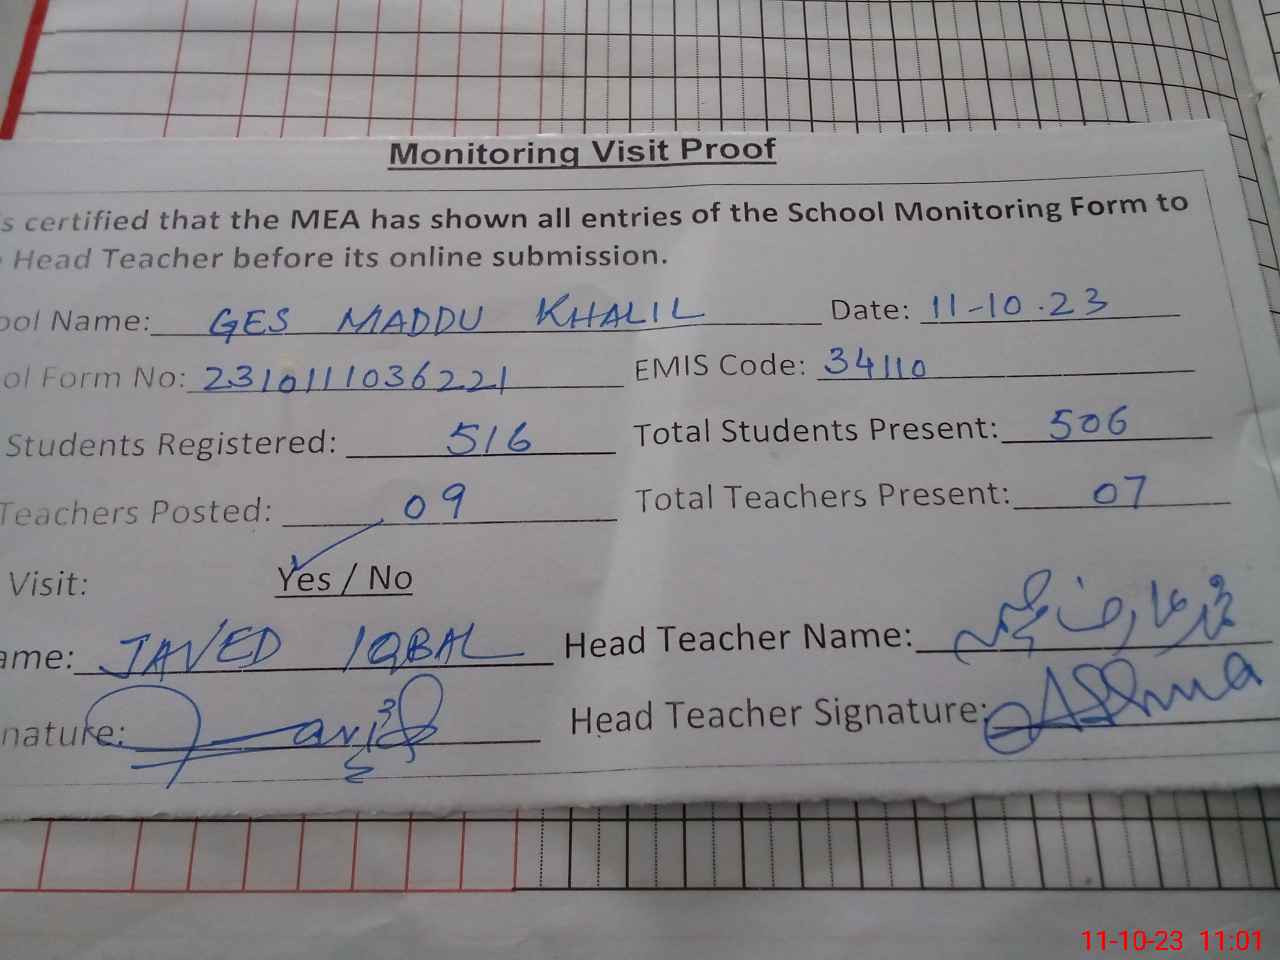 Monitoring Visit Proof
s certified that the MEA has shown all entries of the School Monitoring Form to
Head Teacher before its online submission.
ool Name: GES MADDU KHALIL Date: 11-10.23
ol Form No: 23101111036221 EMIS Code: 34110
Students Registered: 516 Total Students Present: 506
Teachers Posted: 09 Total Teachers Present: 07
Visit: Yes / No
ame: JAVED IQBAL Head Teacher Name:
nature: Head Teacher Signature:
11-10-23 11:01